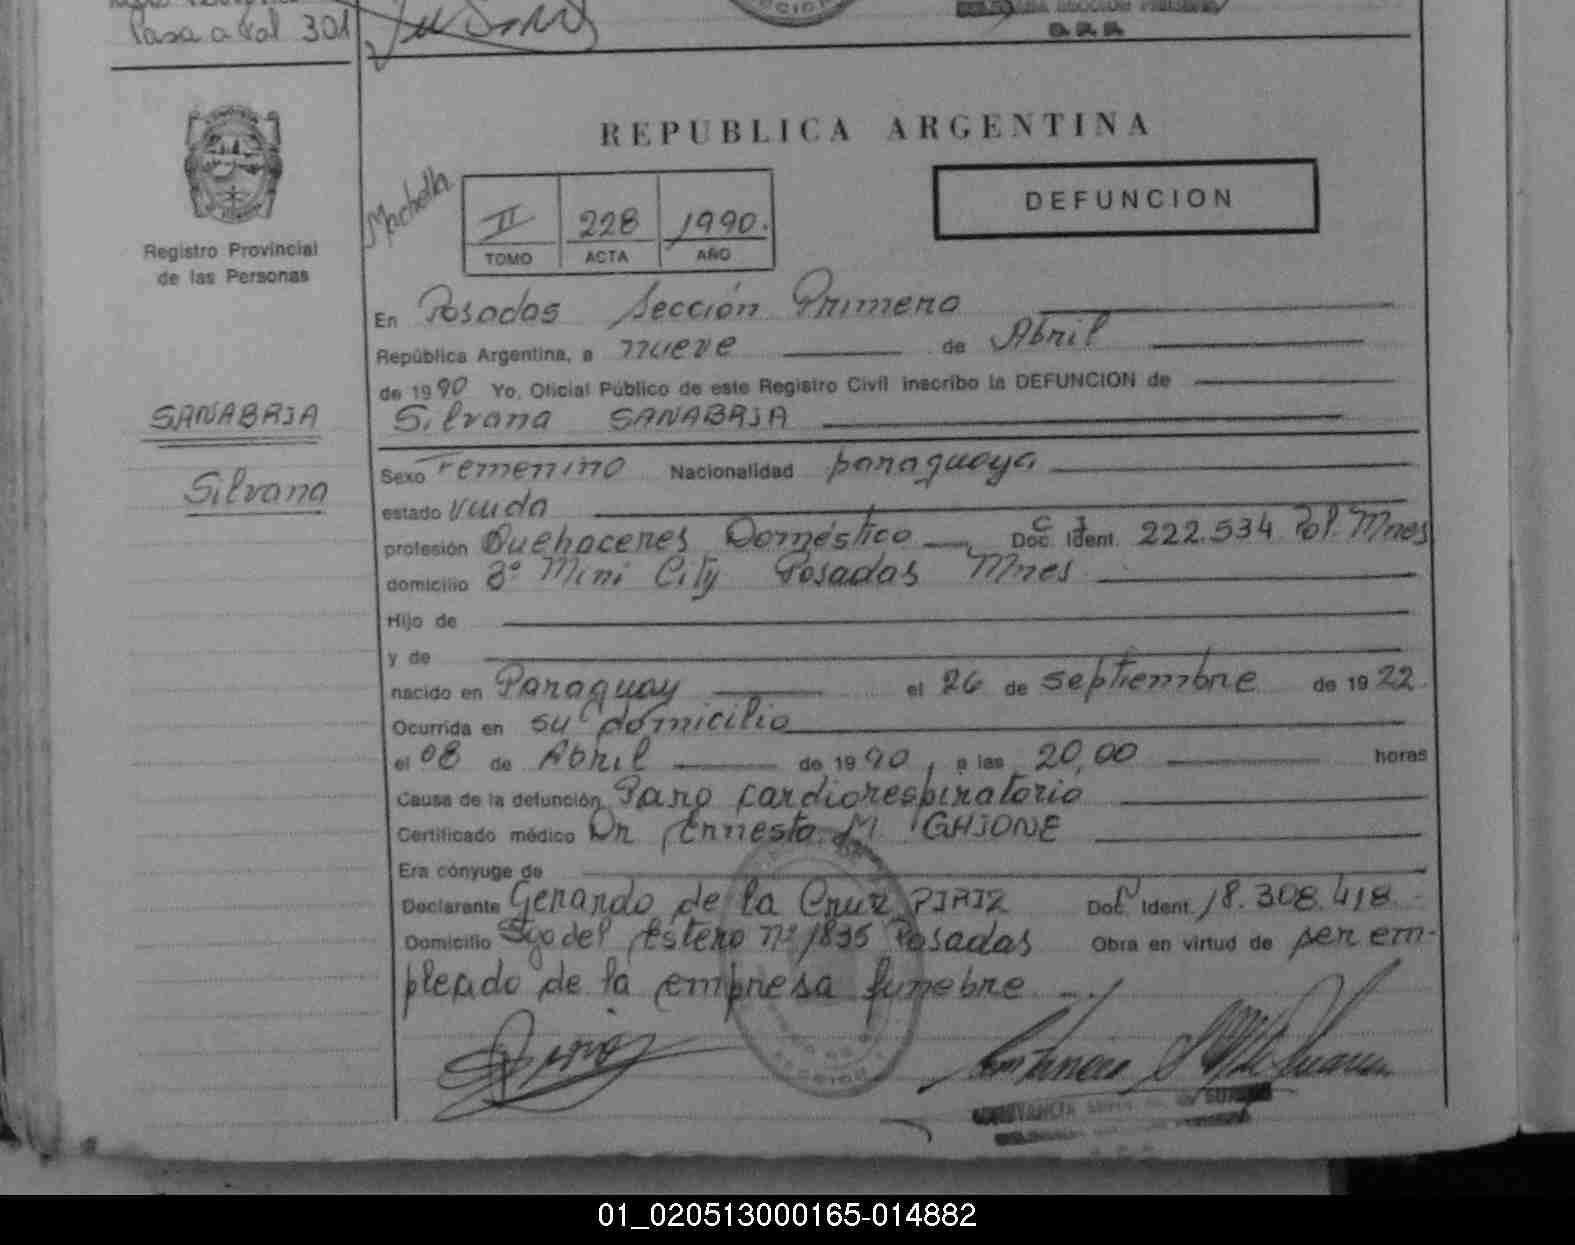 Pasa a Fol 301
REPUBLICA ARGENTINA
Machella
II 228 1990.
TOMO ACTA AÑO
DEFUNCION
Registro Provincial
de las Personas
SANABRIA
Silvana
En Posadas Sección Primera
República Argentina, a nueve de Abril
de 1990 Yo, Oficial Público de este Registro Civil inscribo la DEFUNCION de
Silvana SANABRIA
Sexo Femenino Nacionalidad paraguaya
estado viuda
profesión Quehaceres Doméstico C I Doc. Ident. 222.534 Pol. Mnes
domicilio 8° Mini City Posadas Mnes
Hijo de
y de
nacido en Paraguay el 26 de septiembre de 1922.
Ocurrida en su domicilio
el 08 de Abril de 1990, a las 20,00 horas
Causa de la defunción Paro cardiorespiratorio
Certificado médico Dr Ernesto M. GHIONE
Era cónyuge de
Declarante Gerardo de la Cruz PIRIZ Doc. Ident. 18.308.418.
Domicilio Sgo del Estero n° 1835 Posadas Obra en virtud de ser em-
pleado de la empresa funebre
01_020513000165-014882